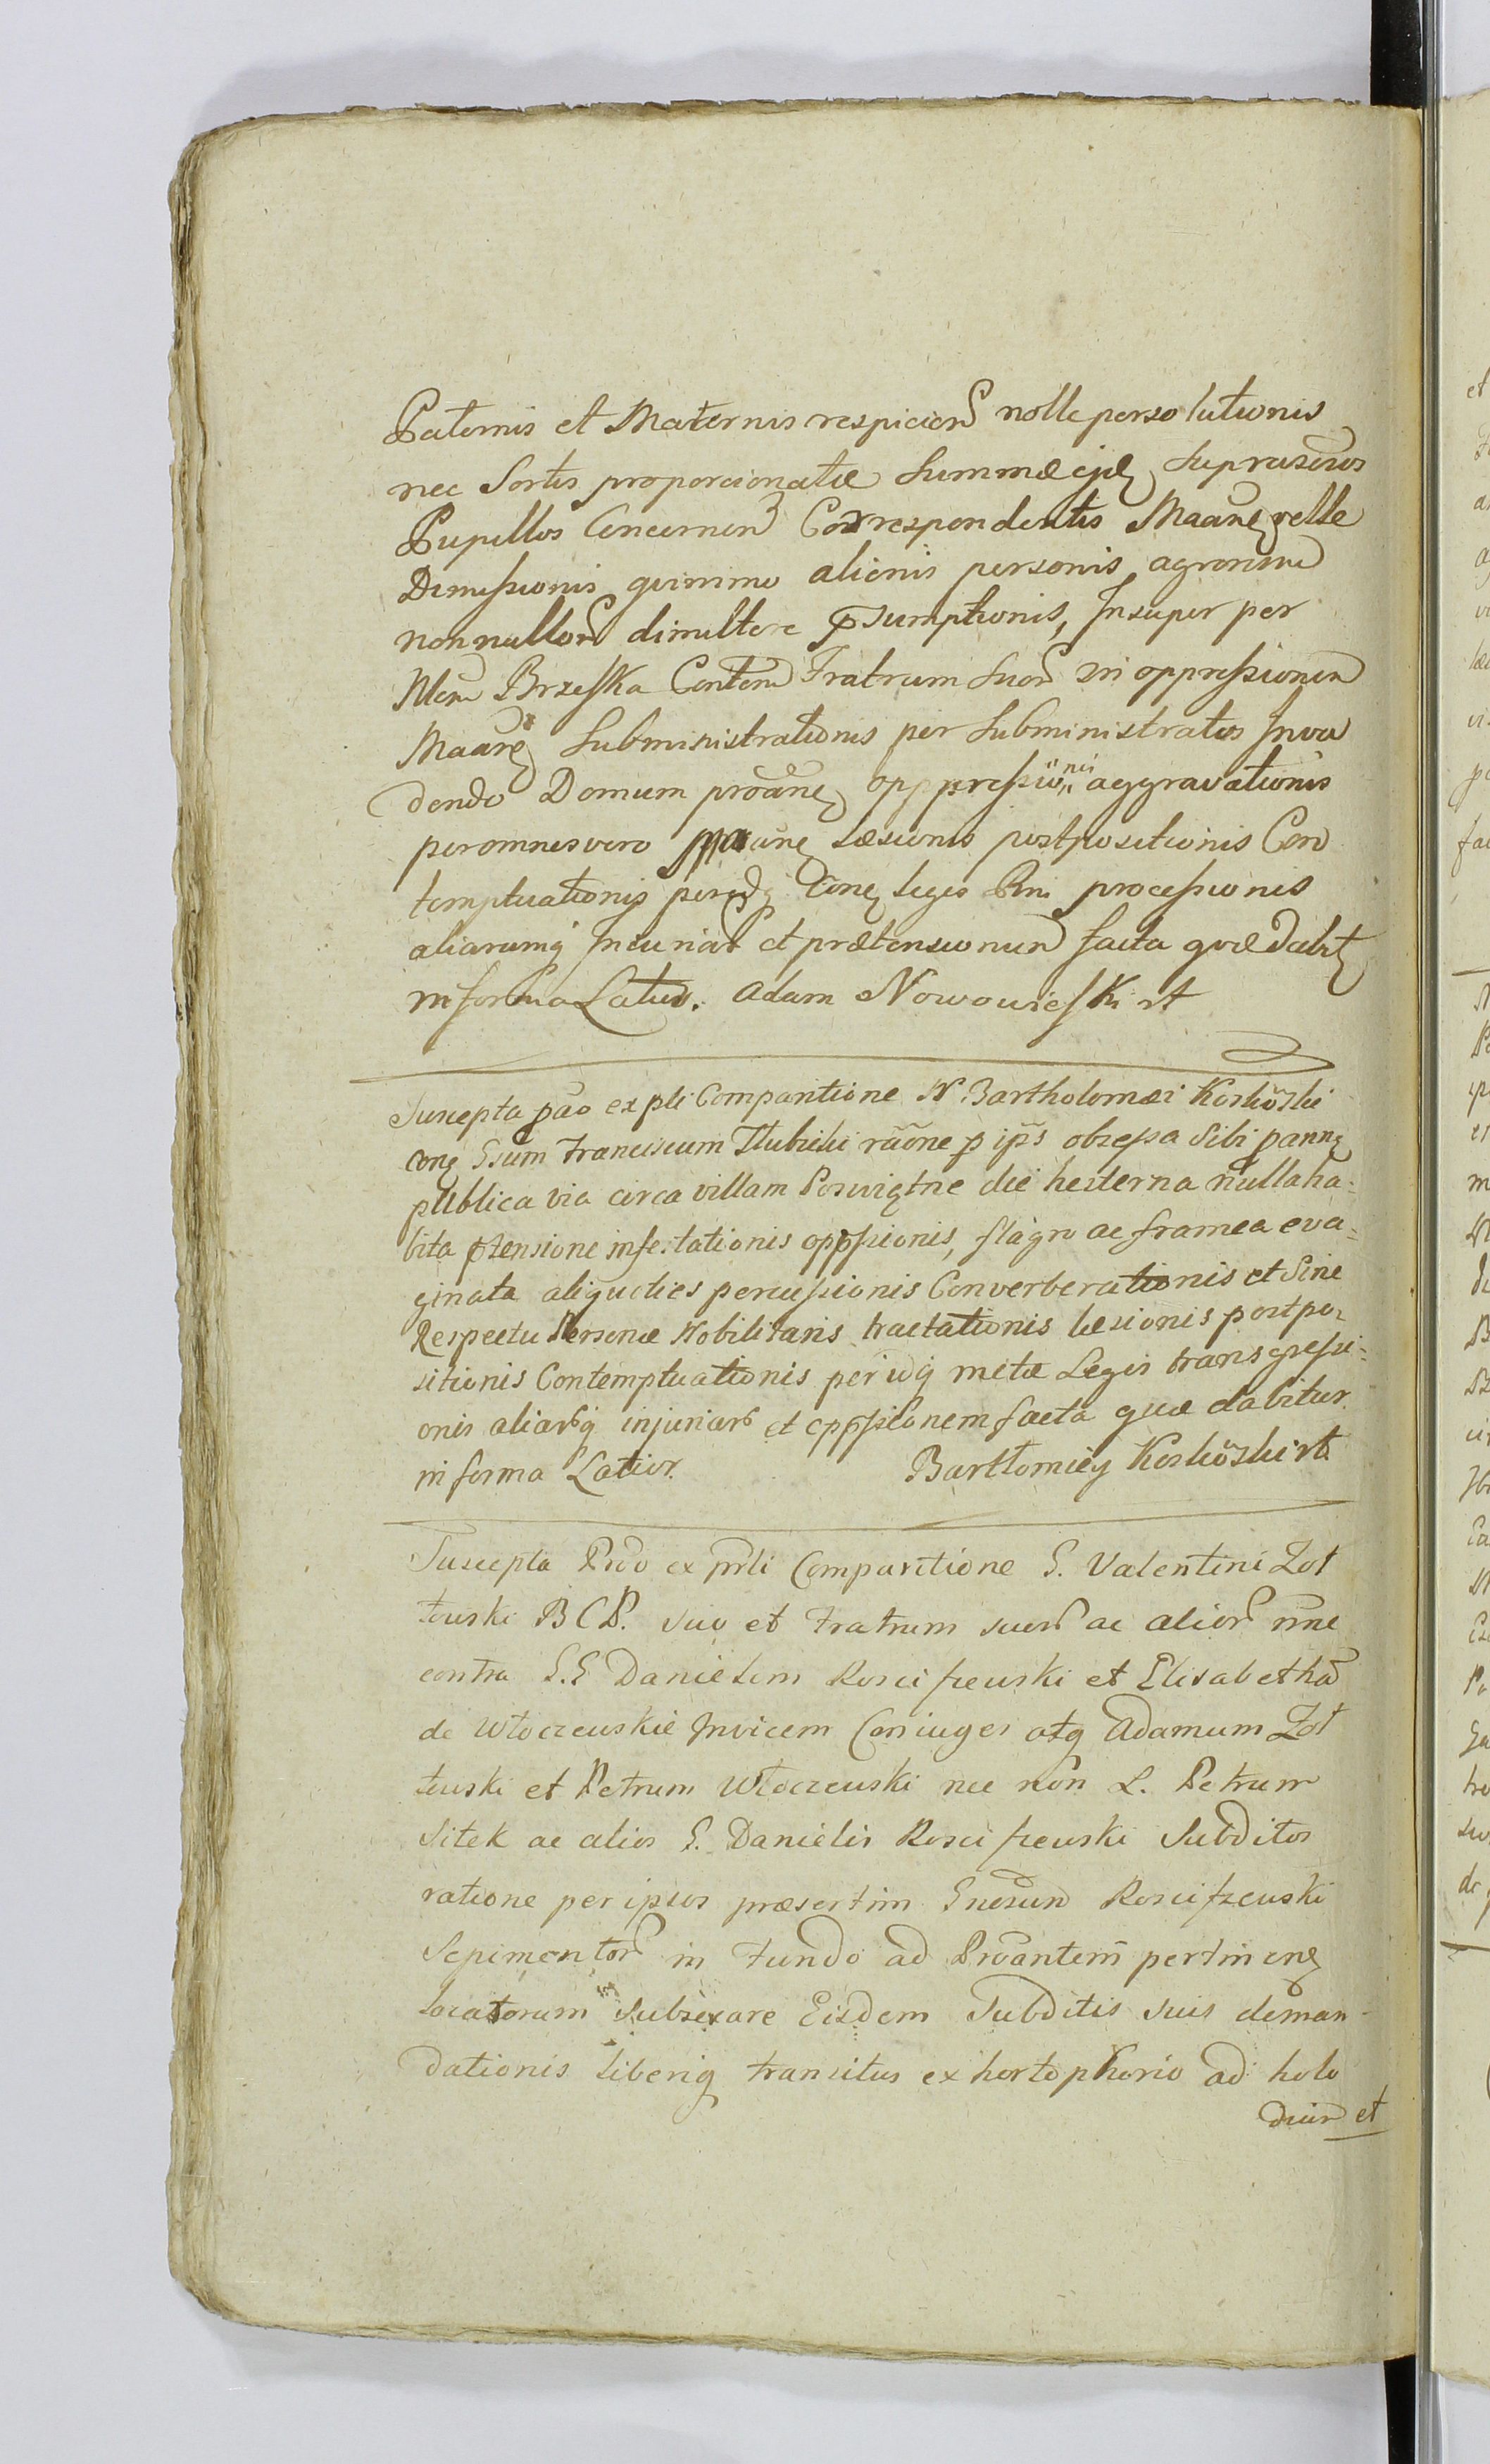 Paternis et Maternis respicien nolle persolutionis
nec Sortis proporcionatæ Summæ ejd suprascros
Pupillos Concernen Correspondentis Maane velle
Dimissionis quinimo alienis personis agrorum
nonnullor dimittere psumptionis, Insuper per
Nlem Brzeska Conten Fratrum Suor in oppressionem
Maane Subministrationis per Subministratos Inva
dendo Domum proane oppressionis aggravationis
per omnes vero læsionis postpositionis Con
temptuationis peridq legis Rni processionis
aliarumq Injuriar et prætensionum facta quæ dabit
in forma Latius. Adam Nowowieski rt
Suscepta pao ex pli Comparitione N Bartholomæi Koskoski
cone Gsum Franciscum Tlubicki raone p ipss obsessa Sibi pann
publica via circa villam Poswigtne die hesterna nulla ha=
bita ptensione infestationis oppssionis, flagro ac framea eva=
ginata aliquoties percussionis Converberationis et Sine
Respectu Personæ Nobilitaris tractationis læsionis postpo=
sitionis Contemptuationis peridq metæ Legis transgressi=
onis aliarq injuriar et oppssionem facta quæ dabitur
in forma Latior. Bartłomiey Koskoski rt
Suscepta Prõo ex prli Comparitione G. Valentini Zół
towski B C P. suo et Fratrum suor ac alior nne
contra G.G Danielem Kosciszewski et Elisabetham
de Włoczewskie Invicem Coniuges atq Adamum Zoł
towski et Petrum Włoczewski nec non L. Petrum
Sitek ac alios G. Danielis Kosciszewski Subditos
ratione per ipsos præsertim Gnosum Kosciszewski
Sepimentor in Fundo ad Proantem pertinen
locatorum Subsecare Eisdem Subditis suis deman-
dationis liberiq transitus ex hortophorio ad holo
et